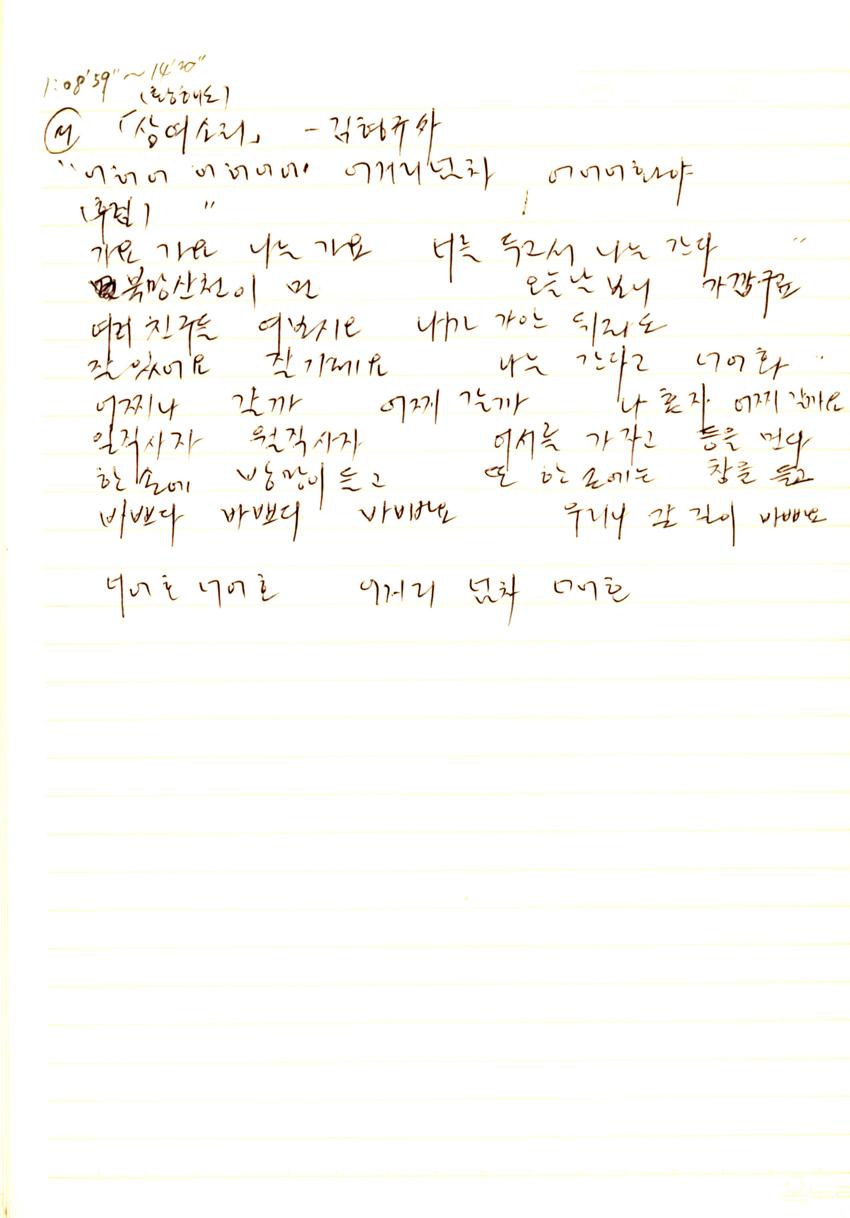 1:08'59" ~ 14'20"
(황해도)
「상여소리」 -
" 어허어 어허어어에 어거리넘차 어어어화야
(후렴) "
가요 가요 나는 가요 너를 두고서 나는 간다 "
북망산천이 먼 오늘날 보니 가깝구료
여러 친구들 여보시요 내가 가아 뒤라도
잘 있어요 잘 기세요 나는 간다고 너어화 "
어찌나 갈까 어찌 갈까 나 혼자 어찌 갈까요
일직사자 월직사자 어서들 가자고 등을 민다
한 손에 방망이 들고 또 한 손에는 창을 들고
바쁘다 바쁘다 바비뻐요 우리나 갈 길이 바뻐요
너어호 너어호 어거리 넘차 너어호